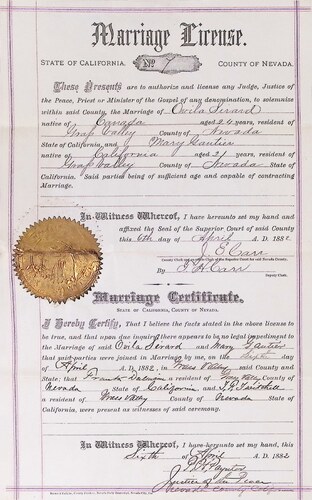 Marriage License.
STATE OF CALIFORNIA. No. 7 COUNTY OF NEVADA.
These Presents are to authorize and license any Judge, Justice of
the Peace, Priest or Minister of the Gospel of any denomination, to solemnize
within said County, the Marriage of Ovila Serard
native of Canada aged 26 years, resident of
Grass Valley County of Nevada
State of California, and Mary Gautier
native of California aged 21 years, resident of
Grass Valley County of Nevada State of
California. Said parties being of sufficient age and capable of contracting
Marriage.
In Witness Whereof, I have hereunto set my hand and
affixed the Seal of the Superior Court of said County
this 6th day of April A. D. 1882
E Carr
By Carr
Deputy Clerk.
Marriage Certificate.
STATE OF CALIFORNIA, COUNTY OF NEVADA.
I Hereby Certify, That I believe the facts stated in the above license to
be true, and that upon due inquiry there appears to be no legal impediment to
the Marriage of said Ovila Serard and Mary Gautier
that said parties were joined in Marriage by me, on the Sixth day
of April A. D. 1882, in Grass Valley said County and
State; that Frank a resident of Grass Valley County of
Nevada State of California, and
a resident of Grass Valley County of Nevada State of
California, were present as witnesses of said ceremony.
In Witness Whereof, I have hereunto set my hand, this
Sixth day of April A. D. 1882
Justice of the Peace
Nevada County